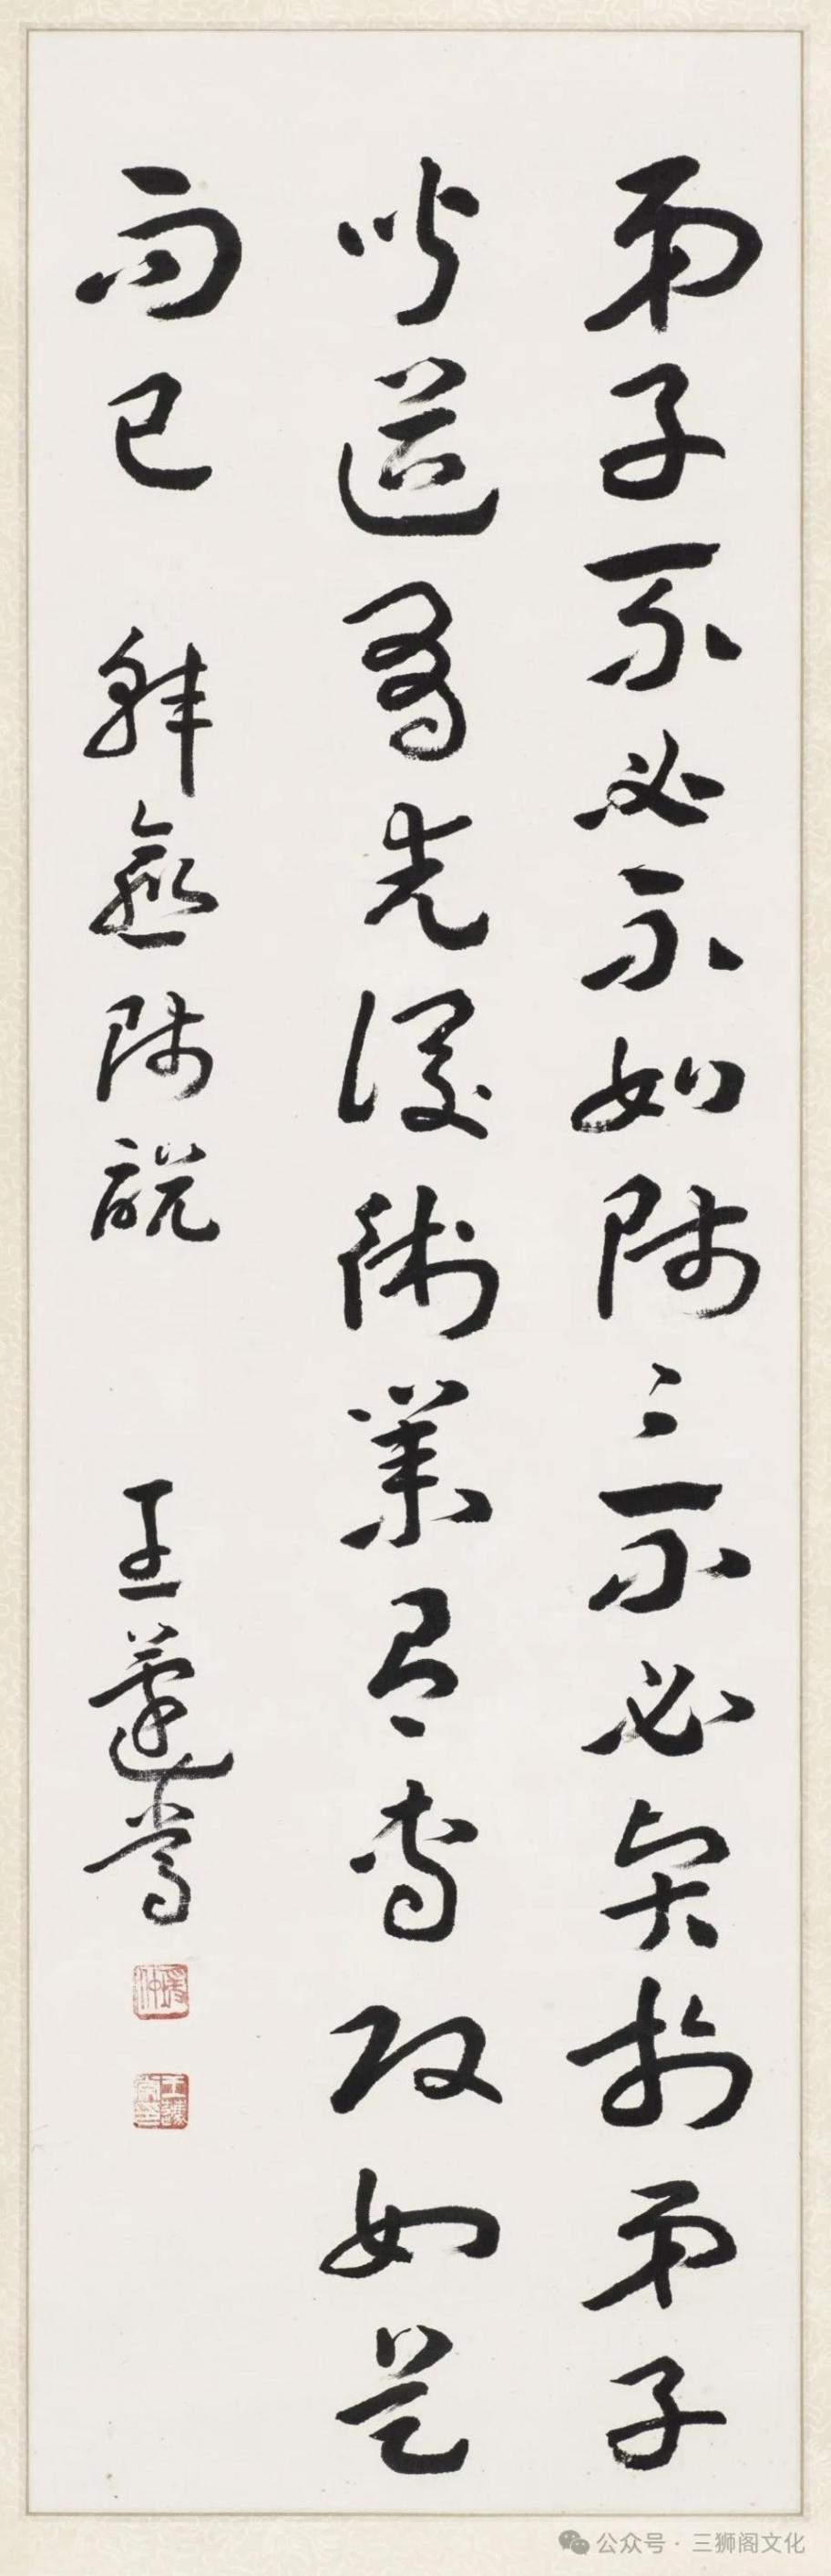 弟子不必不如師〻不必賢於弟子
聞道有先後術業有專攻如是
而已 韓愈師說 王蘧常
瑗仲
王蘧常印
公众号 · 三狮阁文化